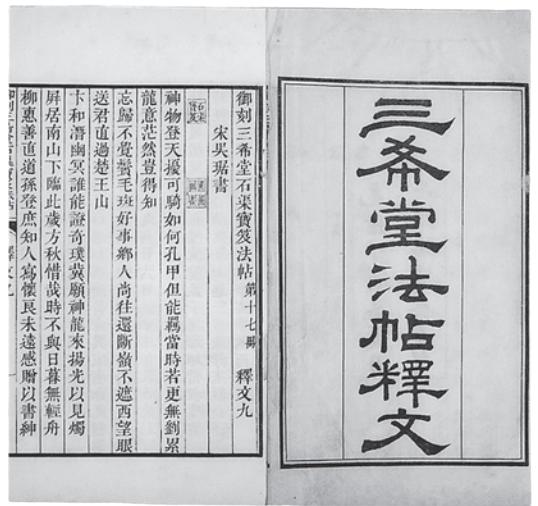 三希堂法帖釋文
御刻三希堂石渠寶笈法帖 第十七冊 釋文九
宋吳琚書
神物登天擾可騎如何孔甲但能羈當時若更無劉累
龍意茫然豈得知
忘歸不覺鬢毛斑好事鄉人尚往還斷嶺不遮西望眼
送君直過楚王山
卞和潛幽冥誰能證奇璞冀願神龍來揚光以見燭
屏居南山下臨此歲方秋惜哉時不與日暮無輕舟
柳惠善直道孫登庶知人寫懷良未遠感贈以書紳
釋文九